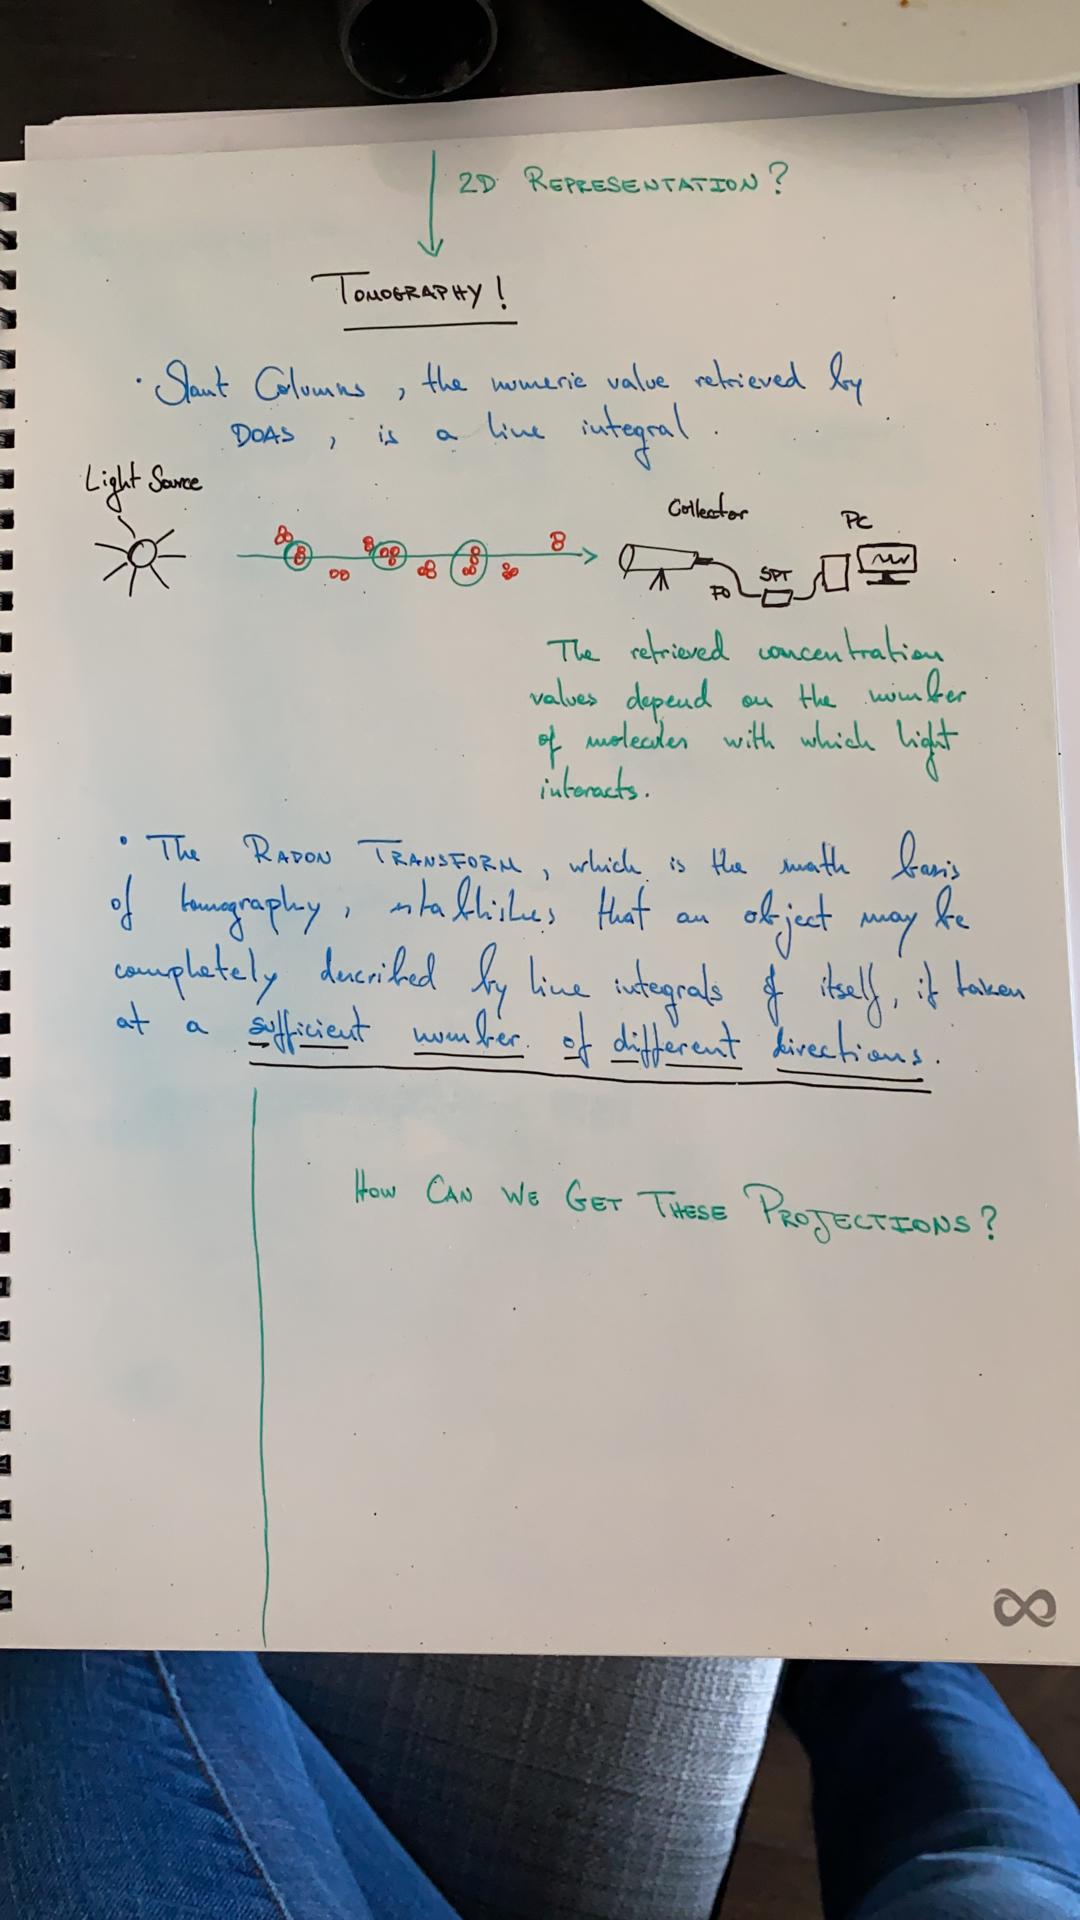 2D REPRESENTATION?
TOMOGRAPHY!
· Slant Columns, the numeric value retrieved by
DOAS, is a line integral.
Light Source
Collector
PC
SPT
FO
The retrieved concentration
values depend on the number
of molecules with which light
interacts.
· The RADON TRANSFORM, which is the math basis
of tomography, establishes that an object may be
completely described by line integrals of itself, if taken
at a sufficient number of different directions.
HOW CAN WE GET THESE PROJECTIONS?